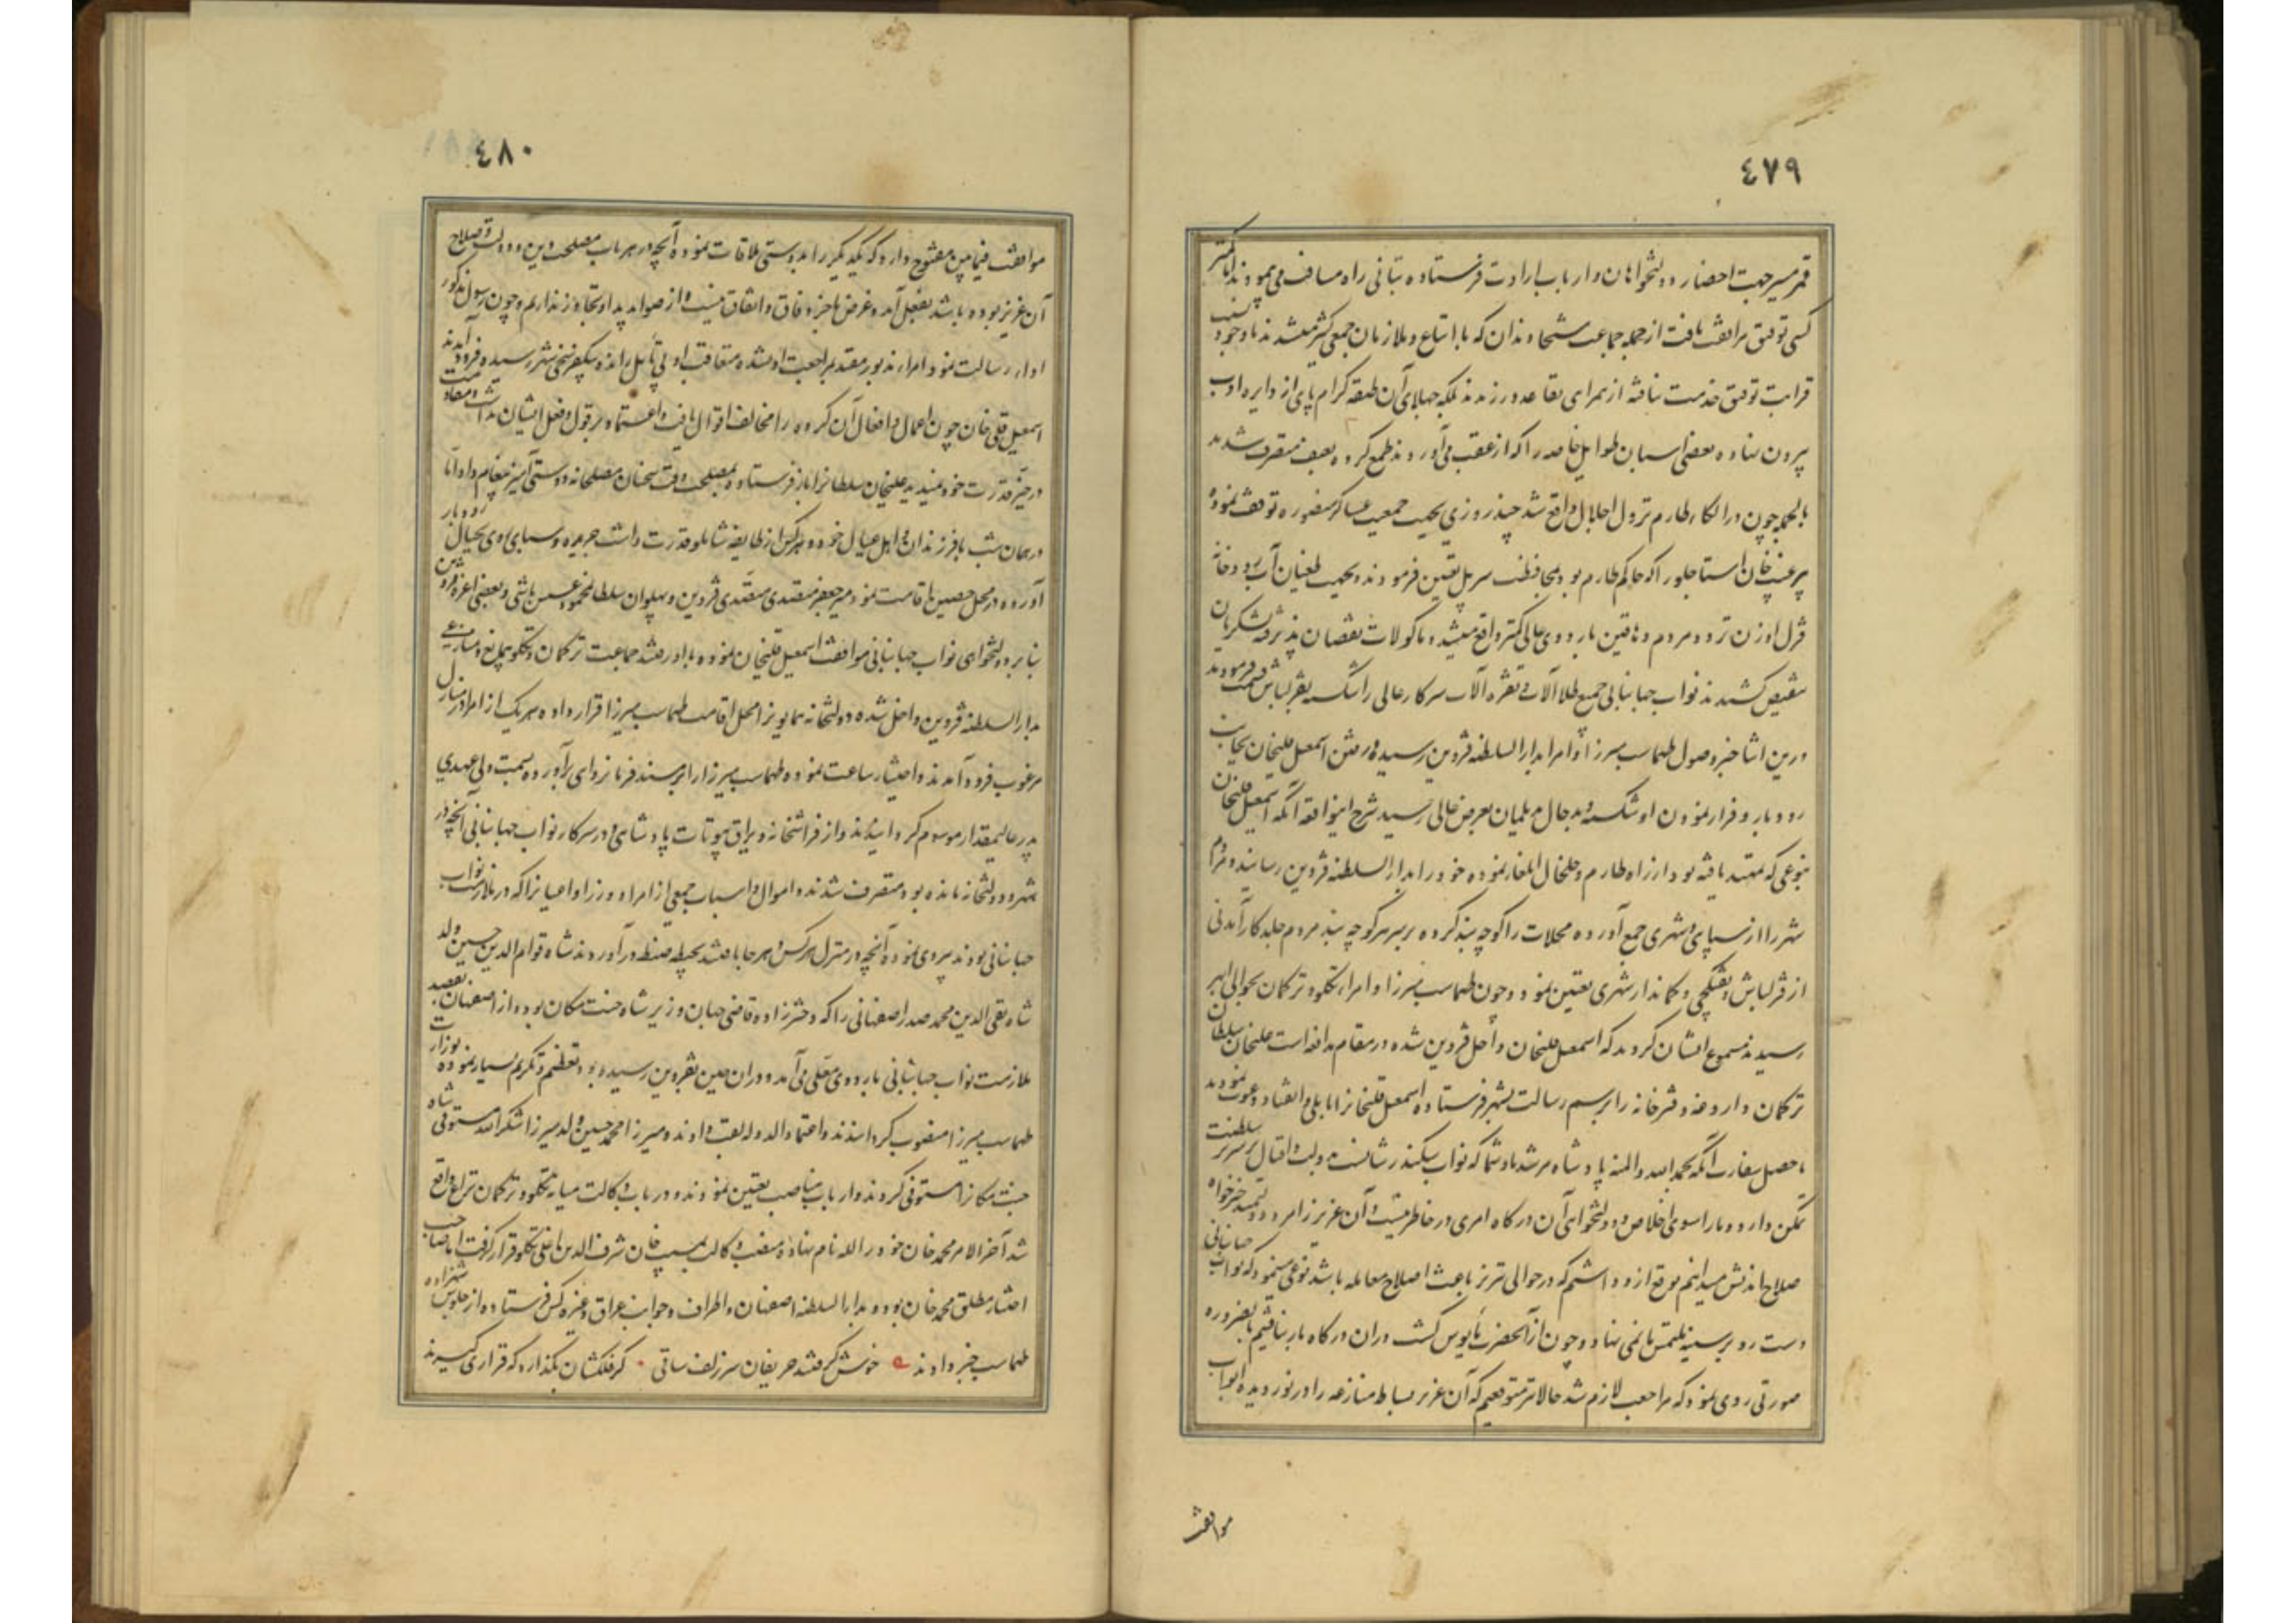 ٤٧٩
قمر مسیر جهت احضار دولتخواهان و ارباب ارادت فرستاده بتانی راه مسافت می پیمودند اما کمتر
کسی توفیق مرافقت یافت از جمله جماعت شیخاوندان که با اتباع و ملازمان جمعی کثیر میشدند با وجود نسبت
قرابت توفیق خدمت نیافته از همراهی تقاعد ورزیدند بلکه جهلای آن طبقه کرام پای از دایره ادب
بیرون نهاده بعضی اسبان طوایل خاصه را که از عقب می آوردند طمع کرده بعنف متصرف شدند
بالجمله چون در الکاء طارم نزول اجلال واقع شد چند روزی بجهت جمعیت عساکر منصوره توقف نموده
پیر غیب خان استاجلو را که حاکم طارم بود بمحافظت سر پل تعیین فرمودند و بجهت طغیان آب رودخانه
قزل اوزن تردد مردم دهاقین باردوی عالی کمتر واقع میشد و ماکولات نقصان پذیرفته لشکریان
تنقیص کشیدند نواب جهانبانی جمیع طلاآلات و نقره آلات سرکار عالی را شکسته بقزلباش قسمت فرمودند
درین اثنا خبر وصول طهماسب میرزا و امرا بدارالسلطنه قزوین رسیده و رفتن اسمعیل قلیخان بجانب
رودبار و فرار نمودن او شکسته و بدحال بدیلمان بعرض عالی رسید شرح اینواقعه آنکه اسمعیل قلیخان
بنوعی که تمهید یافته بود از راه طارم و خلخال ایلغار نموده خود را بدارالسلطنه قزوین رسانید و مردم
شهر را از سپاهی و شهری جمع آورده محلات را کوچه بند کرده بر سر هر کوچه بند مردم جلد کارآمدنی
از قزلباش و تفنگچی و کماندار شهری تعیین نمود و چون طهماسب میرزا و امراء تکلو و ترکمان بحوالی ابهر
رسیدند مسموع ایشان گردید که اسمعیل قلیخان داخل قزوین شده در مقام مدافعه است علیخان سلطان
ترکمان داروغه دفترخانه را برسم رسالت بشهر فرستاده اسمعیل قلیخانرا بایلی و انقیاد دعوت نمودند
ماحصل سفارت آنکه بحمد الله والمنه پادشاه مرشد ما و شما که نواب سکندر شانست بدولت و اقبال بر سریر سلطنت
تمکن دارد و ما را سوای اخلاص و دولتخواهی آن درگاه امری در خاطر نیست و آن عزیز را مرد دولتمند خیرخواه
صلاح اندیش میدانیم توقع ازو داشتیم که در حوالی تبریز باعث اصلاح معامله باشد نوعی مینمود که نواب جهانبانی
دست رد بر سینه ملتمس ما نمی نهاد و چون از آنحضرت مأیوس گشت و در آن درگاه بار نیافتیم بالضروره
صورتی روی نمود که مراجعت لازم شد حالا نیز متوقعیم که آن عزیز بساط منازعه را در نوردیده ابواب
موافقت
٤٨٠
موافقت فیمابین مفتوح دارد که یکدیگر را بدوستی ملاقات نموده آنچه در هر باب مصلحت دین و دولت و صلاح
آن عزیز بوده باشد بفعل آمده غرض ما جز وفاق و اتفاق نیست و از صوابدید او تجاوز نداریم و چون رسول مذکور
اداء رسالت نمود امراء مذبور مقید بمراجعت او نشده متعاقب او بی تأمل رانده بیکفرسخی شهر رسیده فرود آمدند
اسمعیل قلی خان چون اعمال و افعال آن گروه را مخالف اقوال یافت و اعتماد بر قول و فعل ایشان نداشت و مقاومت
در حیز قدرت خود ندید علیخان سلطانرا باز فرستاده بمصلحت وقت سخنان مصلحانه دوستی آمیز پیغام داد اما
در همان شب با فرزندان و اهل عیال خود و هر کس از طایفه شاملو قدرت داشت جریده و سبای روی بجبال رودبار
آورده در محل حصین اقامت نمود میر جعفر مقتدی مقتدای قزوین و پهلوان سلطان محمود حسن باشی و بعضی اعزه قزوین
بنا بر دولتخواهی نواب جهانبانی موافقت اسمعیل قلیخان نموده با او رفتند جماعت ترکمان و تکلو بی مانع و منازعی
بدارالسلطنه قزوین داخل شده دولتخانه همایونرا محل اقامت طهماسب میرزا قرار داده هر یک از امرا در منازل
مرغوب فرود آمدند و اختیار ساعت نموده طهماسب میرزا را بر مسند فرمانروائی برآورده بسمت ولی عهدی
پدر عالیمقدار موسوم گردانیدند و از فراشخانه و یراق بیوتات پادشاهی و در سرکار نواب جهانبانی آنچه در
شهر و دولتخانه مانده بود متصرف شدند و اموال و اسباب جمعی از امرا و وزرا و اعیانرا که در ملازمت نواب
جهانبانی بودند پیروی نموده آنچه در منزل هر کس و هر جا یافتند بحیطه ضبط درآوردند شاه قوام الدین حسین ولد
شاه تقی الدین محمد صدر اصفهانی را که دخترزاده قاضی جهان وزیر شاه جنت مکان بود و از اصفهان بقصد
ملازمت نواب جهانبانی باردوی معلی می آمد و در آن حین بقزوین رسیده بود تعظیم و تکریم بسیار نموده بوزارت
طهماسب میرزا منصوب گردانیدند و اعتماد الدوله لقب دادند و میرزا محمد حسین ولد میرزا شکرالله مستوفی شاه
جنت مکانرا مستوفی کردند و ارباب مناصب تعیین نمودند و در باب وکالت میانه تکلو و ترکمان نزاع واقع
شد آخر الامر محمد خان خود را لله نام نهاده منصب وکالت بمسیب خان شرف الدین اغلی تکلو قرار گرفت اما صاحب
اختیار مطلق محمد خان بود و بدارالسلطنه اصفهان و اطراف و جوانب عراق و غیره کس فرستاده از جلوس شهزاده
طهماسب خبر دادند خوش گرفتند حریفان سر زلف ساقی گر فلکشان بگذارد که قراری گیرند